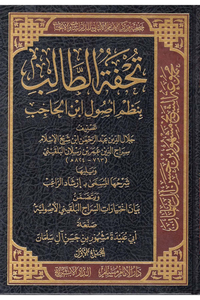 تحفة الطالب
بنظم أصول ابن الحاجب
تصنيف
جلال الدين عبد الرحمن ابن شيخ الإسلام
سراج الدين عمر بن رسلان البلقيني
(٧٦٣ - ٨٢٤هـ)
ويليها
شرحها المسمى بـ إرشاد الراغب
ويتضمن
بيان اختيارات السراج البلقيني الأصولية
أبي عبيدة مشهور بن حسن آل سلمان